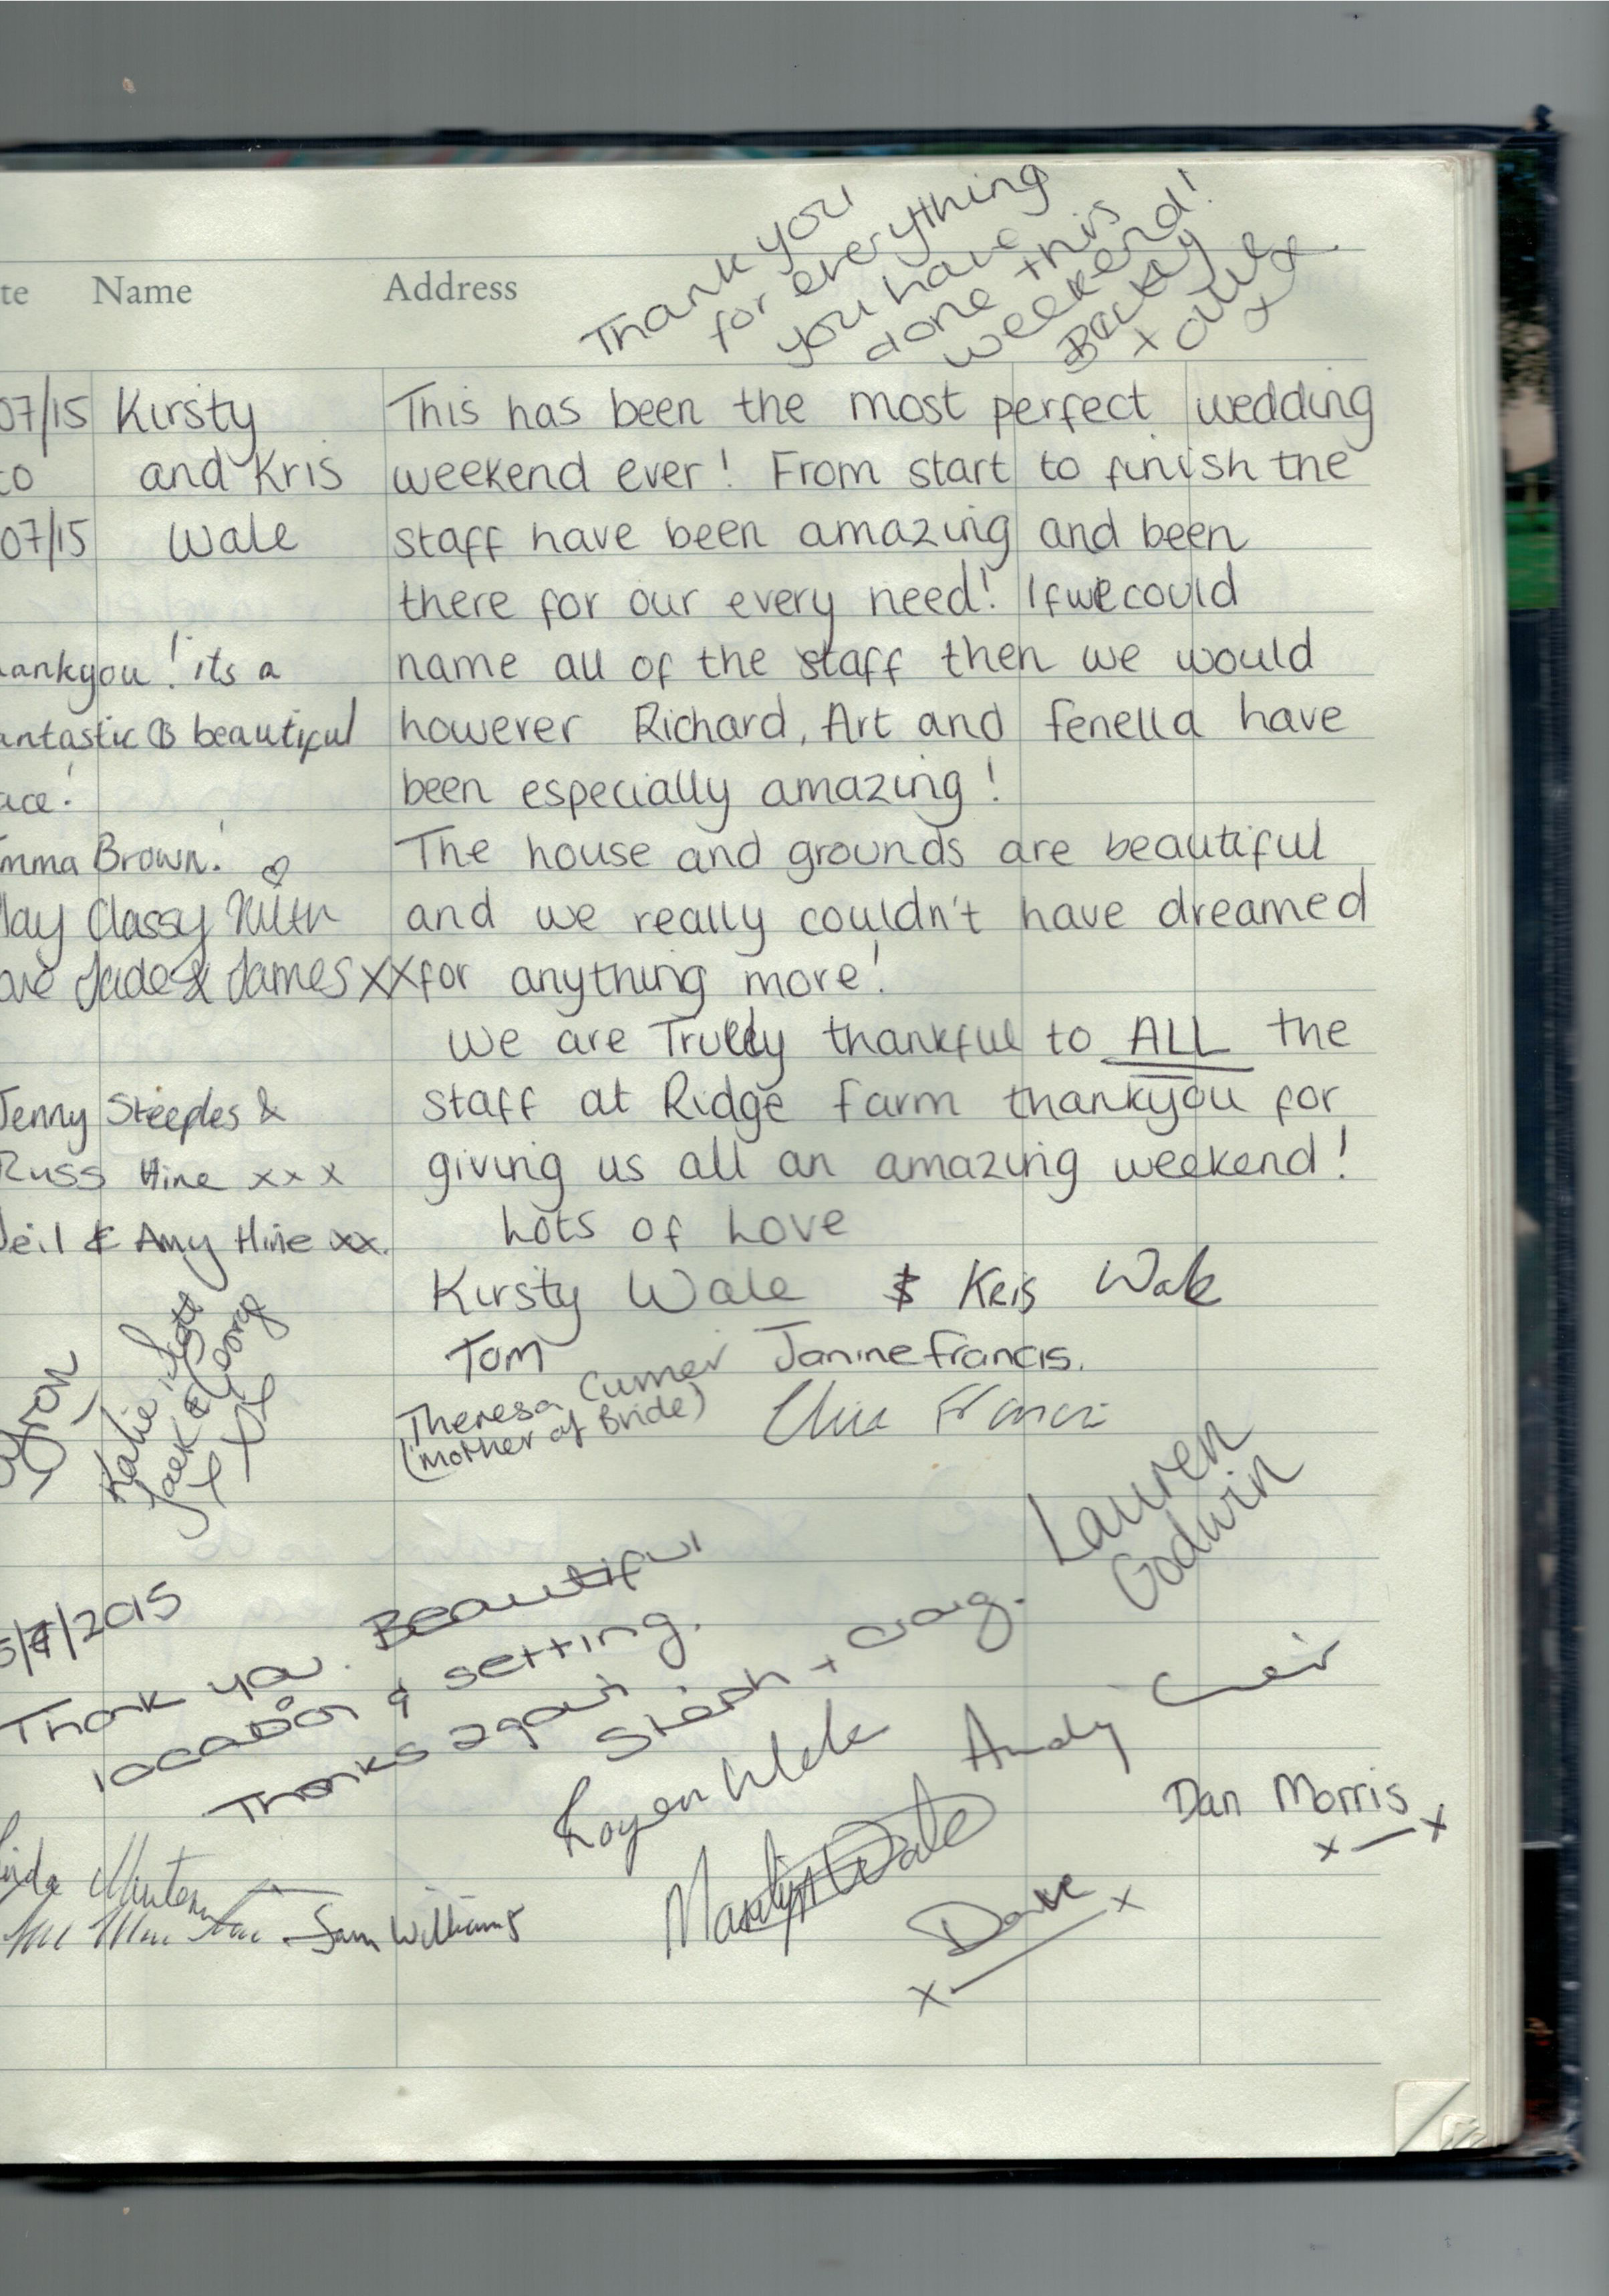 Thank you
for everything
you have
done this
weekend!
Becky
x
te Name Address
07/15 Kirsty This has been the most perfect wedding
to and Kris weekend ever! From start to finish the
07/15 Wale staff have been amazing and been
there for our every need! If we could
ankyou! its a name all of the staff then we would
antastic & beautiful however Richard, Art and Fenella have
ace! been especially amazing!
mma Brown! The house and grounds are beautiful
Classy and we really couldn't have dreamed
Jade & James xx for anything more!
We are Truly thankful to ALL the
Jenny Steeples & staff at Ridge Farm thankyou for
Russ Hine x x x giving us all an amazing weekend!
eil & Amy Hine xx. Lots of Love
Kirsty Wale & Kris Wale
Tom Janine Francis.
Theresa
(mother of Bride)
Francis
Katie
Jack & George
x x x
Lauren
Godwin
/2015
Thank you. Beautiful
location & setting.
Thanks again
Steph + Craig.
Andy
Dan Morris
x — x
Marilyn Wale
Sam Williams
Dave
x — x